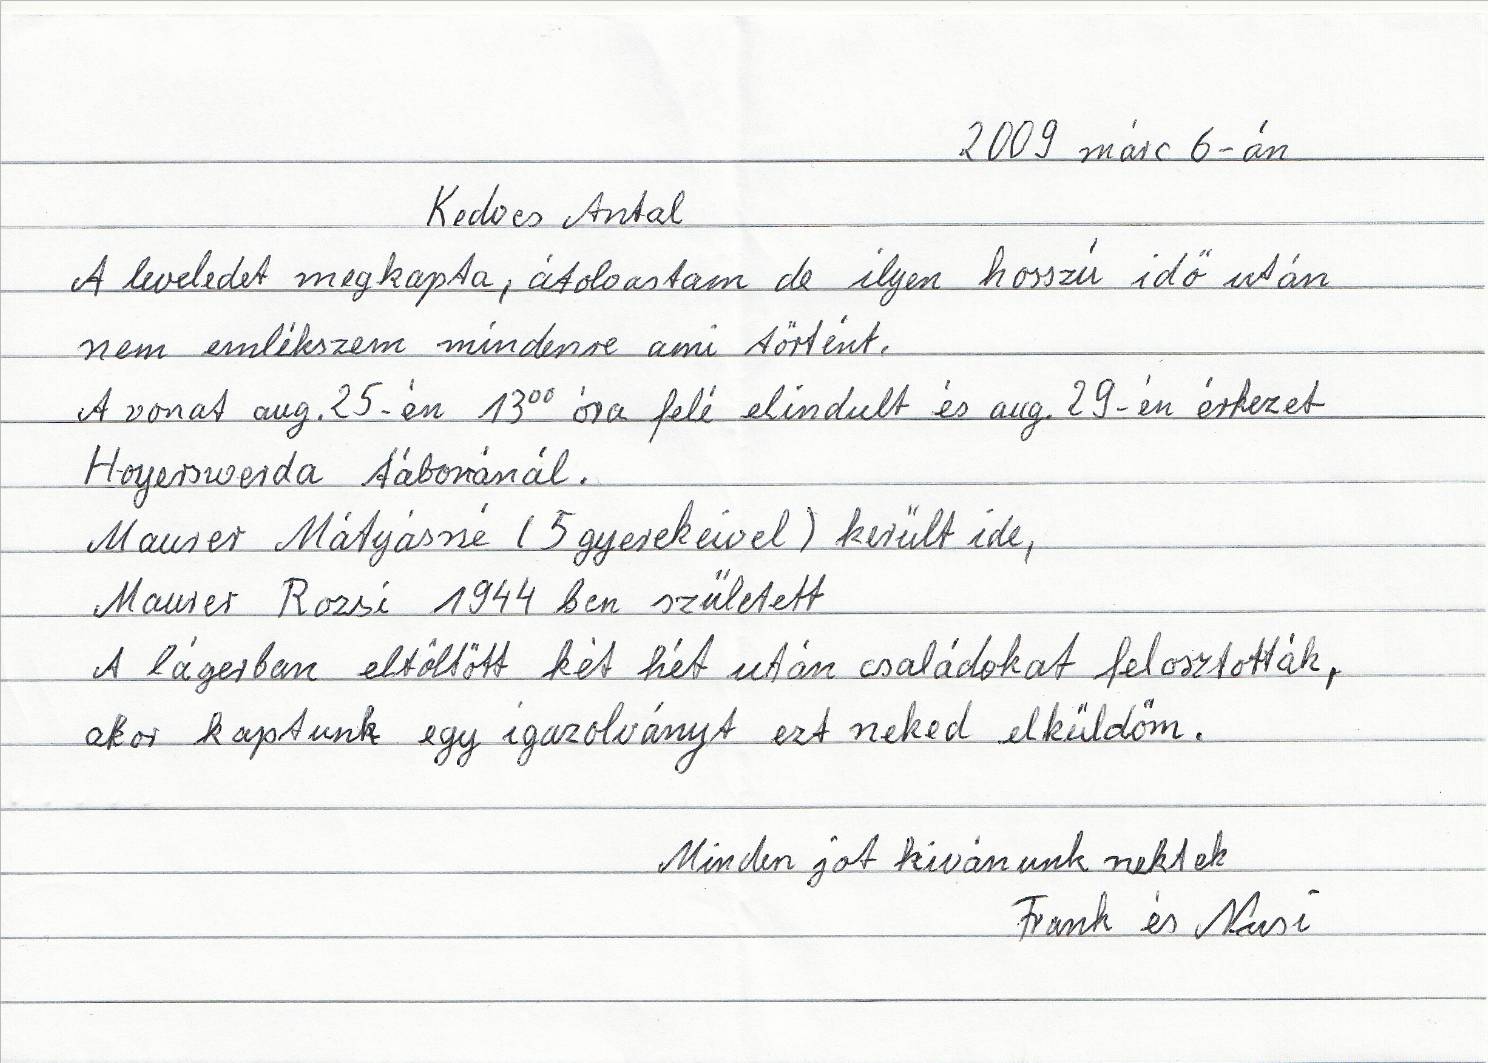 2009 márc 6-án
Kedves Antal
A leveledet megkapta, átolvastam de ilyen hosszú idő után
nem emlékszem mindenre ami történt.
A vonat aug. 25-én 13⁰⁰ óra felé elindult és aug. 29-én érkezet
Hoyerswerda táboránál.
Maurer Mátyásné (5 gyerekeivel) került ide,
Maurer Rozsi 1944 ben született
A lágerban eltöltött két hét után családokat felosztották,
akor kaptunk egy igazolványt ezt neked elküldöm.
Minden jot kivánunk nektek
Frank és Nusi